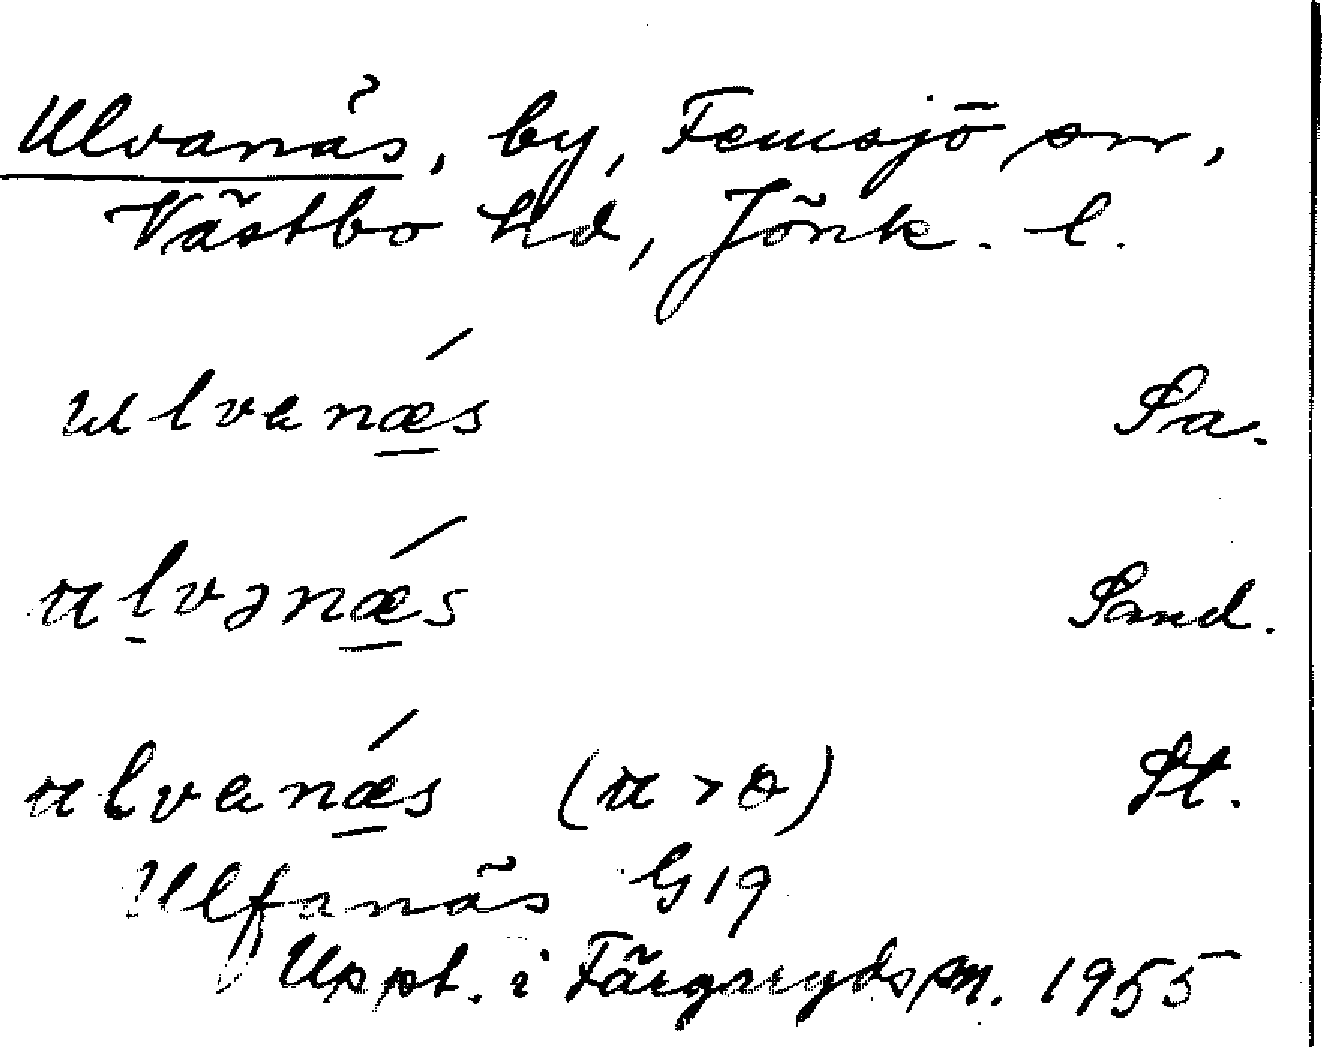 Ulvanäs, by, Femsjö sn,
Västbo hd, Jönk. l.
ulvanǽs Sa.
ulvənǽs Sand.
ulvanǽs (u > o) St.
Ulfanäs G19
Uppt. i Färgaryds sn. 1955